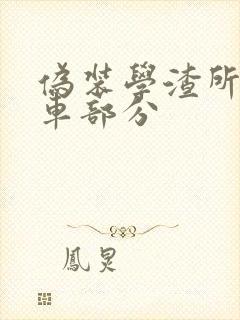 偽裝學渣所
車部分
鳳炅